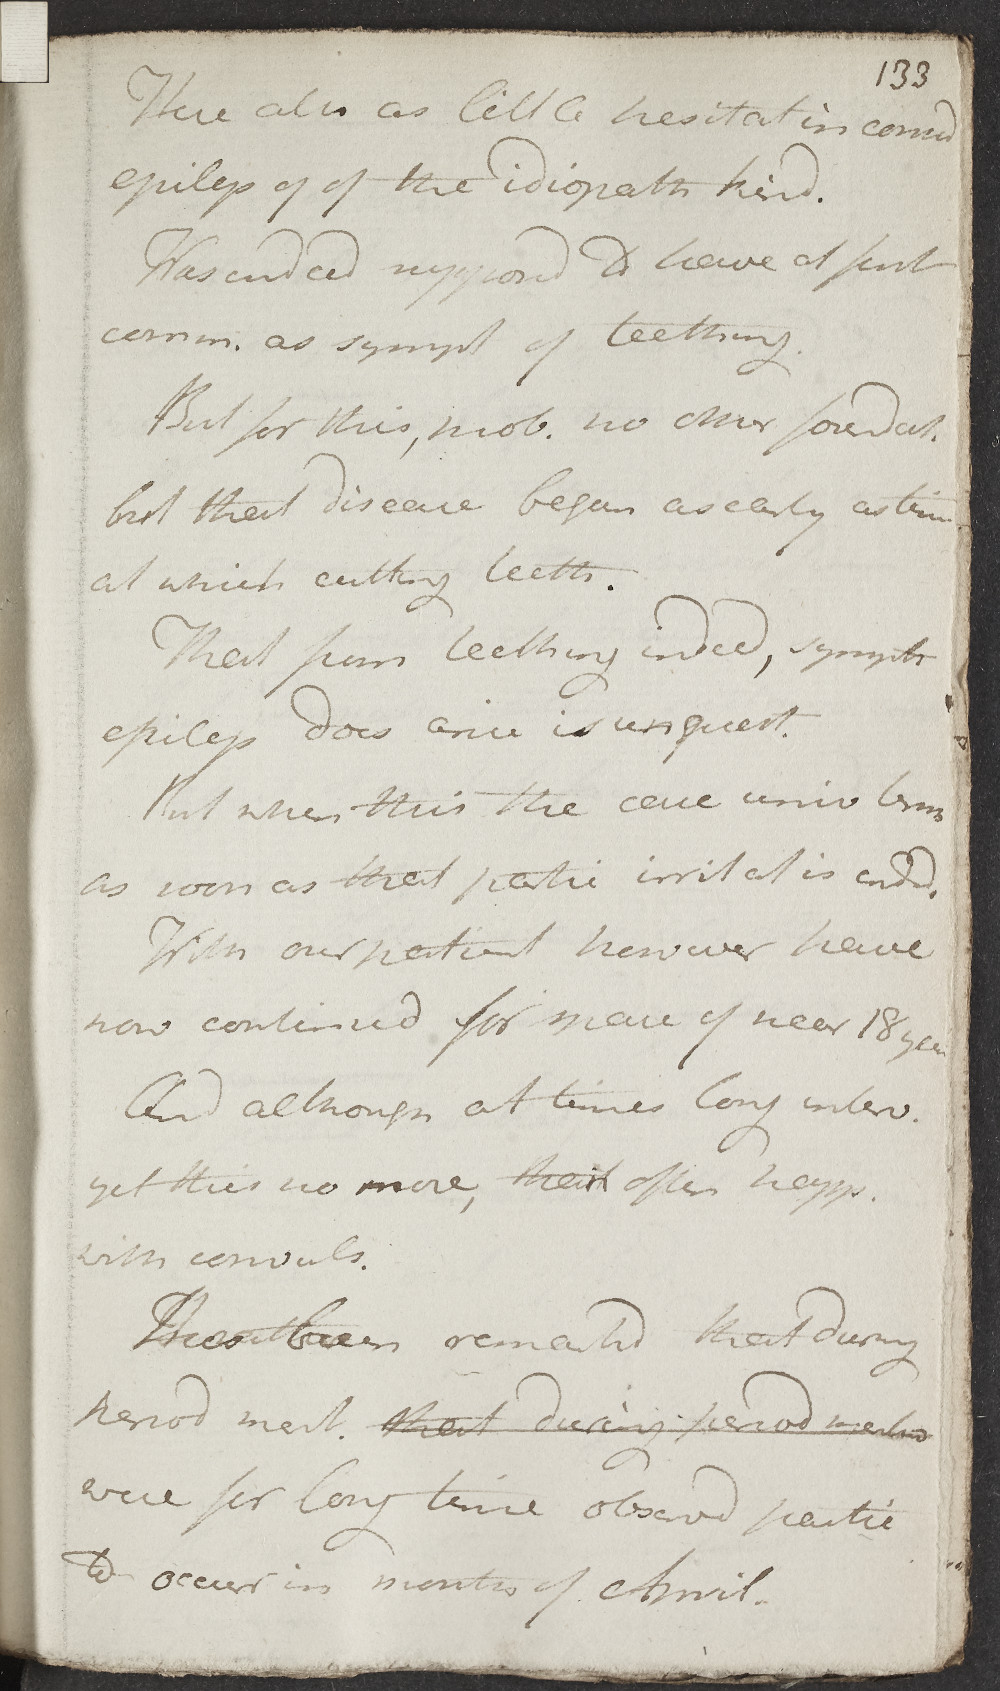 133
Here also as little hesitat in consid
epilepsy of the idiopath kind.
Was indeed suppos'd to have at first
comm. as sympt of teething.
But for this, prob. no other foundat.
but that disease began as early as time
at which cutting teeth.
That from teething indeed, sympt
epileps does arise is unquest.
But when this the case univ term
as soon as that partic irritat is endd.
With our patient however have
now continued for space of near 18 year
And although at times long interv.
yet this no more, than often happ.
with convuls.
remarkd that during
period mest. that during period
were for long time observd partic
to occur in months of April.